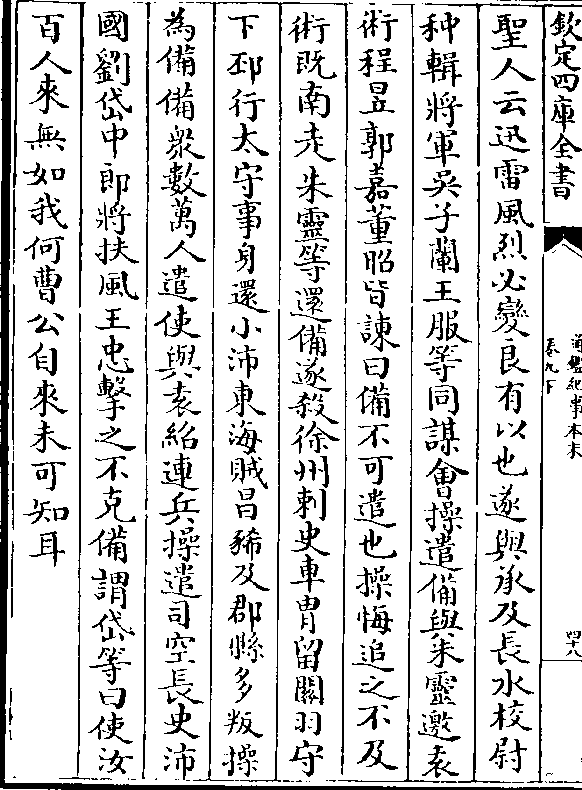 欽定四庫全書
通鑑紀事本末
卷九下
四十八
聖人云迅雷風烈必變良有以也遂與承及長水校尉
种輯將軍吳子蘭王服等同謀會操遣備與朱靈邀袁
術程昱郭嘉董昭皆諫曰備不可遣也操悔追之不及
術既南走朱靈等還備遂殺徐州刺史車胄留關羽守
下邳行太守事身還小沛東海賊昌豨及郡縣多叛操
為備備衆數萬人遣使與袁紹連兵操遣司空長史沛
國劉岱中郎將扶風王忠擊之不克備謂岱等曰使汝
百人來無如我何曹公自來未可知耳